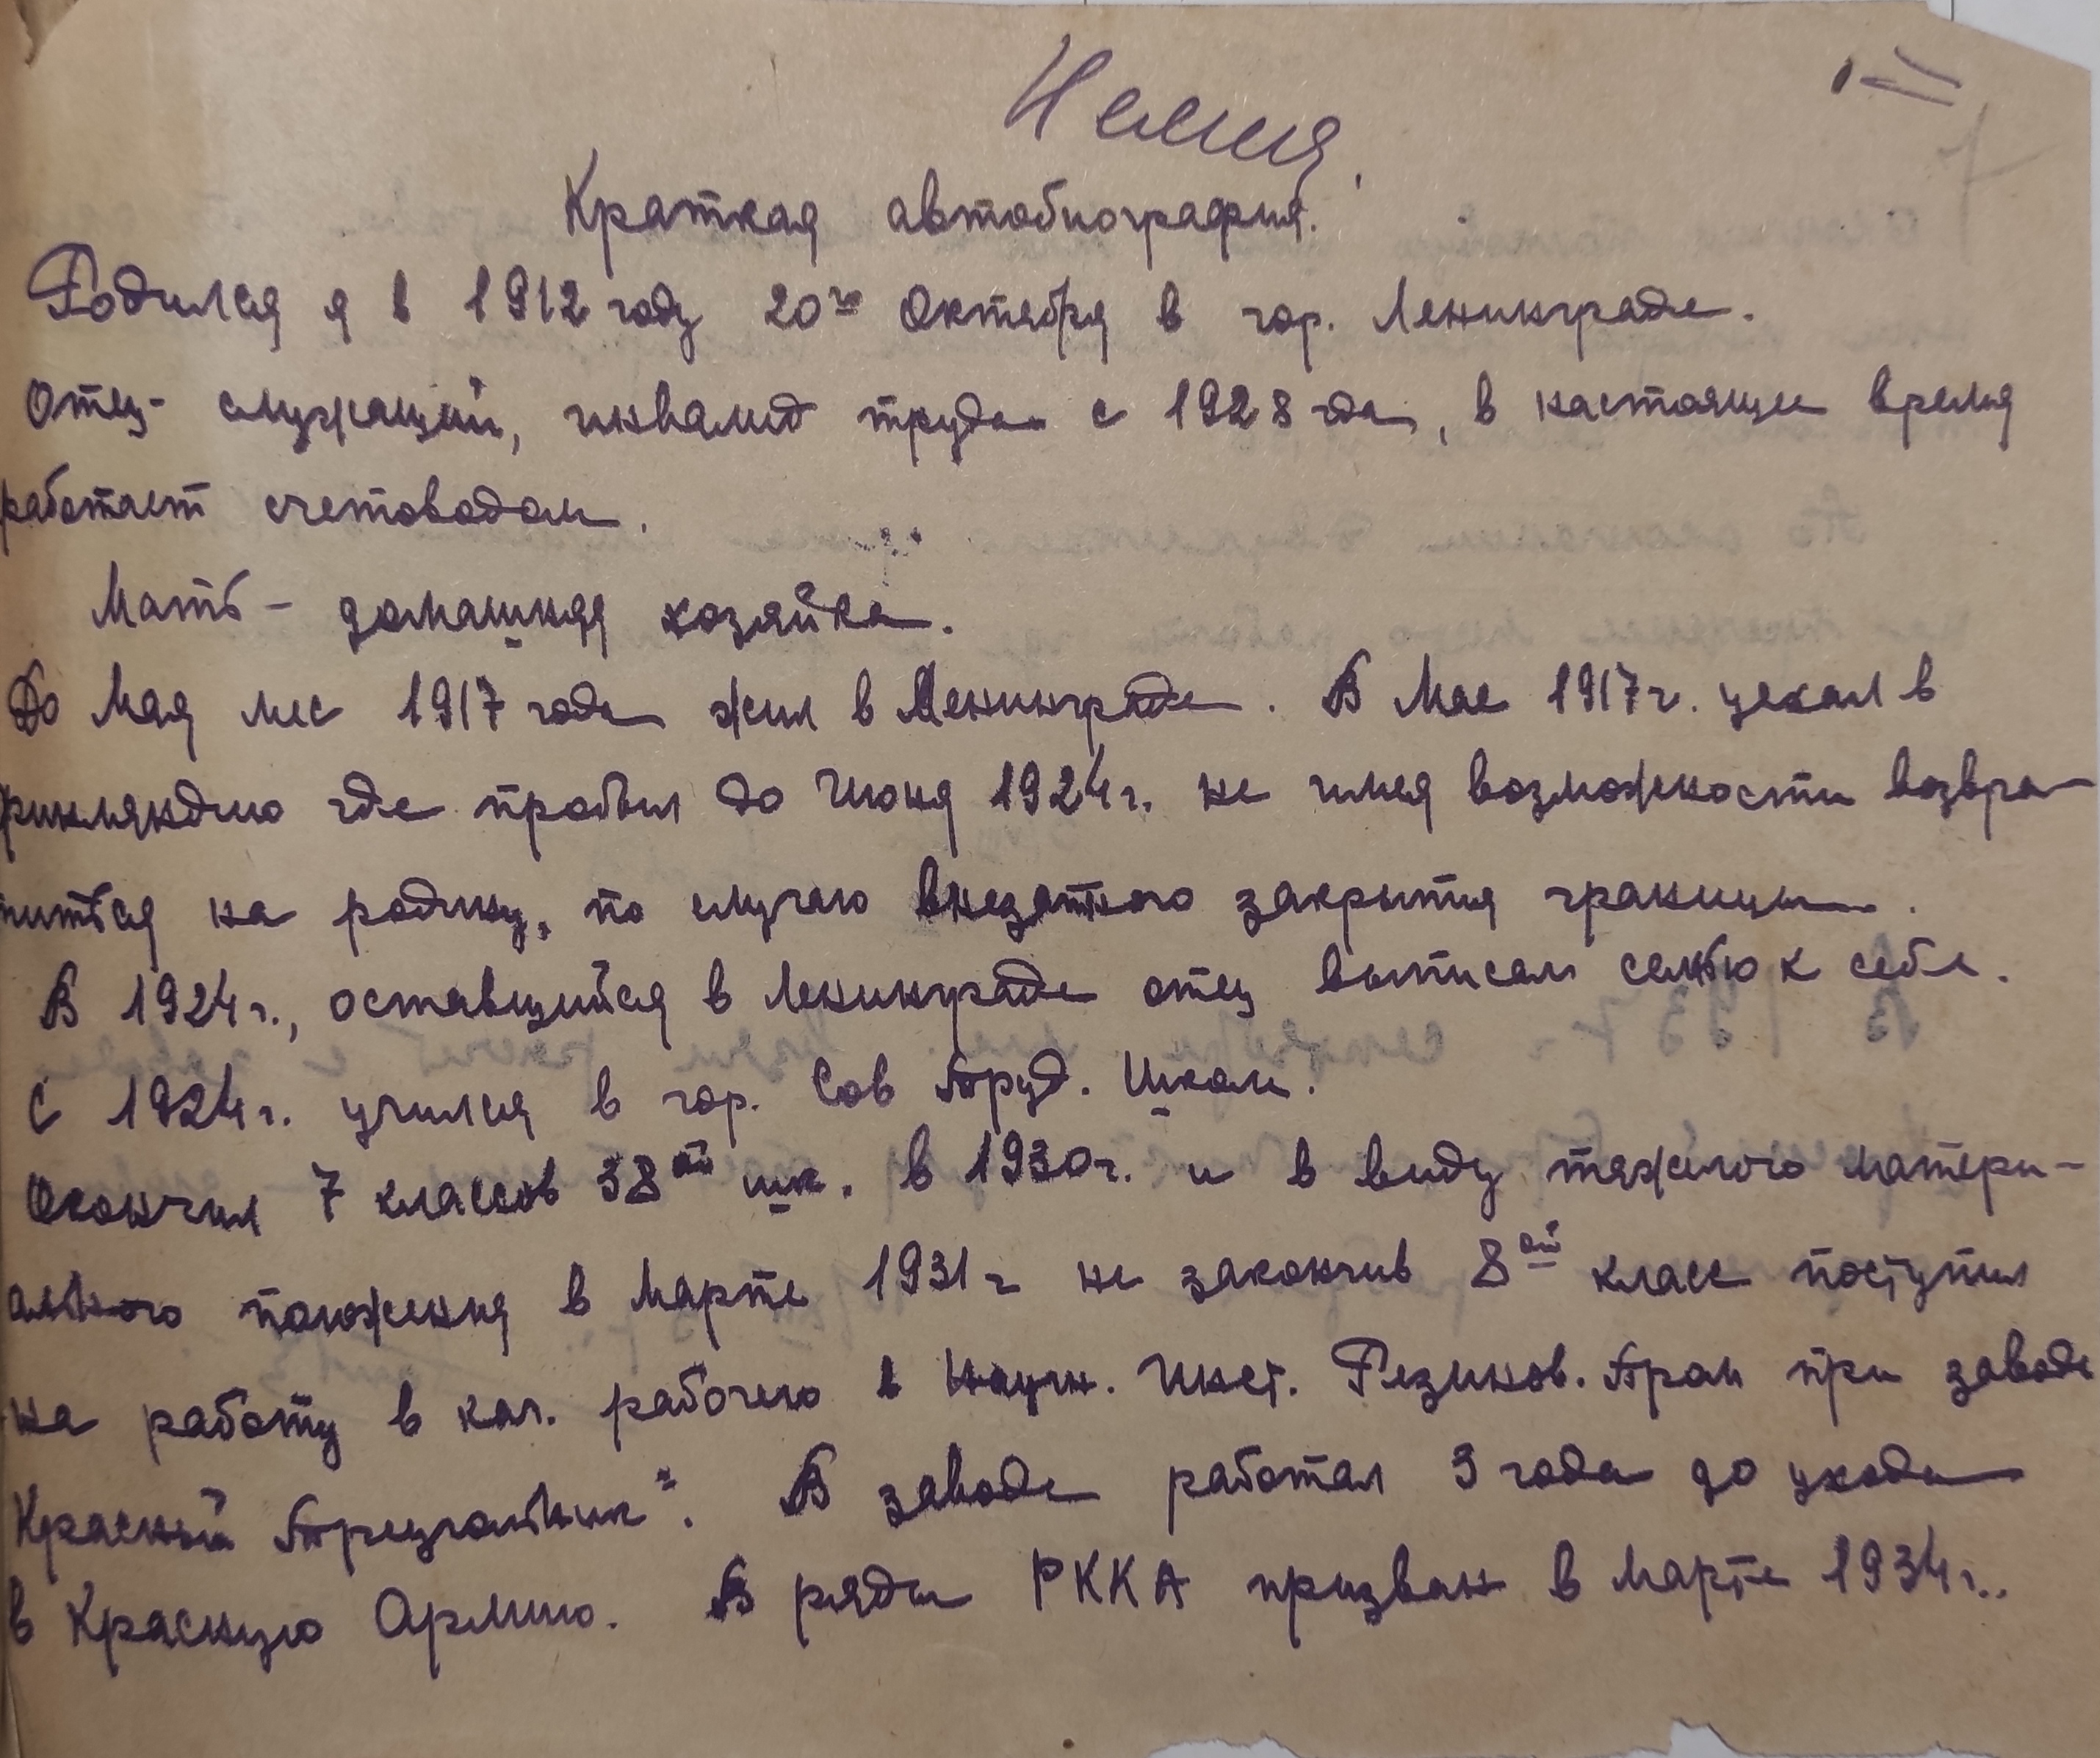 Краткая автобиография.
Родился я в 1912 году 20го Октября в гор. Ленинграде.
Отец - служащий, инвалид труда с 1928 года, в настоящее время
работает счетоводом.
Мать - домашняя хозяйка.
До Мая мес 1917 года жил в Ленинграде. В Мае 1917г. уехал в
Финляндию где пробыл до Июня 1924г. не имея возможности возвра-
титься на родину, по случаю внезапного закрытия границы.
В 1924г., оставшийся в Ленинграде отец выписал семью к себе.
С 1924г. учился в гор. Сов Труд. Школе.
Окончил 7 классов 38ой шк. в 1930г. и в виду тяжелого матери-
ального положения в Марте 1931г не закончив 8ой класс поступил
на работу в кач. рабочего в Научн. Инст. Резинов. Пром при заводе
Красный Треугольник". В заводе работал 3 года до ухода
в Красную Армию. В ряды РККА призван в Марте 1934г.